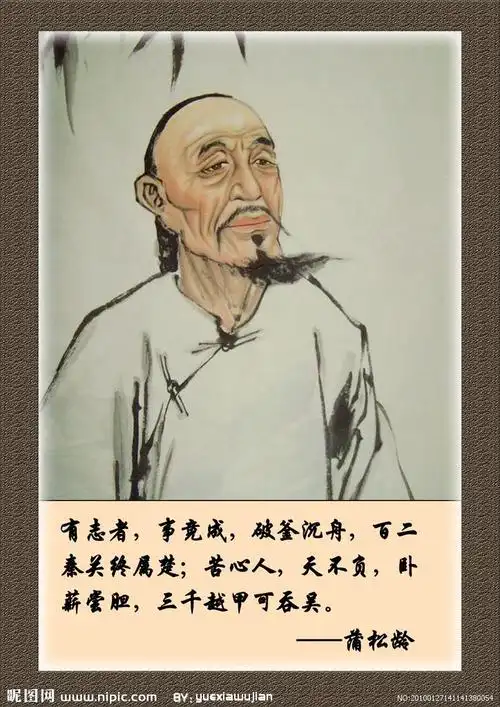 有志者，事竟成，破釜沉舟，百二
秦关终属楚；苦心人，天不负，卧
薪尝胆，三千越甲可吞吴。
——蒲松龄
昵图网 www.nipic.com BY: yuexiawujian NO:20100127141141380054